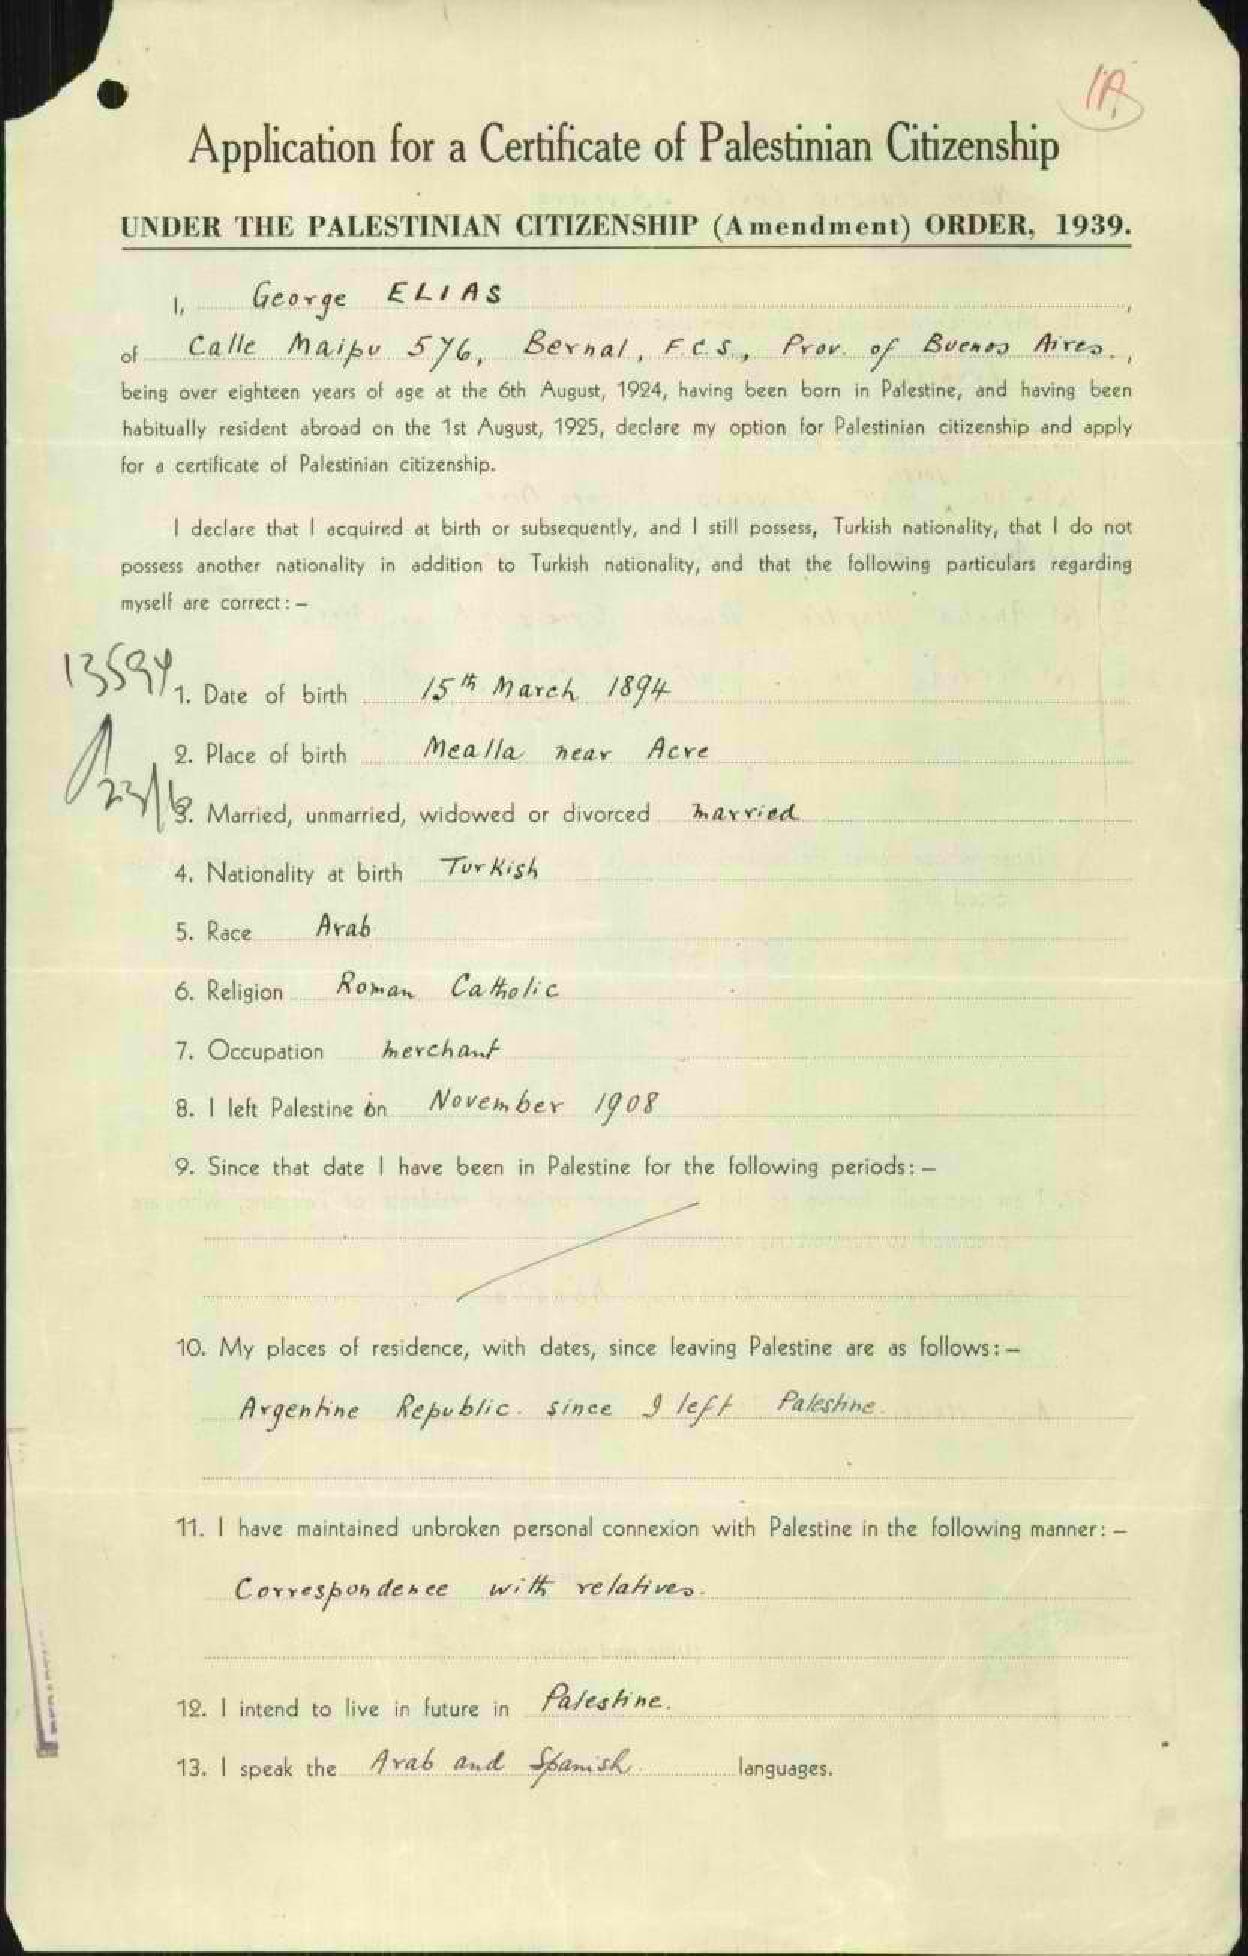 1A.
Application for a Certificate of Palestinian Citizenship
UNDER THE PALESTINIAN CITIZENSHIP (Amendment) ORDER, 1939.
I, George ELIAS,
of Calle Maipu 576, Bernal, F.C.S., Prov. of Buenos Aires.,
being over eighteen years of age at the 6th August, 1924, having been born in Palestine, and having been
habitually resident abroad on the 1st August, 1925, declare my option for Palestinian citizenship and apply
for a certificate of Palestinian citizenship.
I declare that I acquired at birth or subsequently, and I still possess, Turkish nationality, that I do not
possess another nationality in addition to Turkish nationality, and that the following particulars regarding
myself are correct: –
13594
1. Date of birth 15th March 1894
2. Place of birth Mealla near Acre
23/6
3. Married, unmarried, widowed or divorced married
4. Nationality at birth Turkish
5. Race Arab
6. Religion Roman Catholic
7. Occupation merchant
8. I left Palestine on November 1908
9. Since that date I have been in Palestine for the following periods: –
10. My places of residence, with dates, since leaving Palestine are as follows: –
Argentine Republic. since I left Palestine.
11. I have maintained unbroken personal connexion with Palestine in the following manner: –
Correspondence with relatives.
12. I intend to live in future in Palestine.
13. I speak the Arab and Spanish languages.